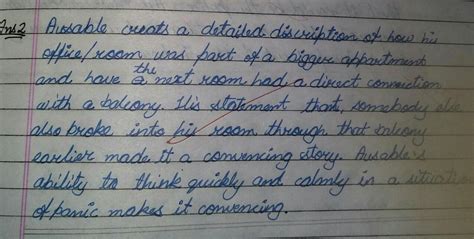 Ans2 Ausable creats a detailed discription of how his
office/room was part of a bigger appartment
and have the next room had a direct connection
with a balcony. His statement that somebody else
also broke into his room through that balcony
earlier made it a convincing story. Ausable's
ability to think quickly and calmly in a situation
of panic makes it convencing.